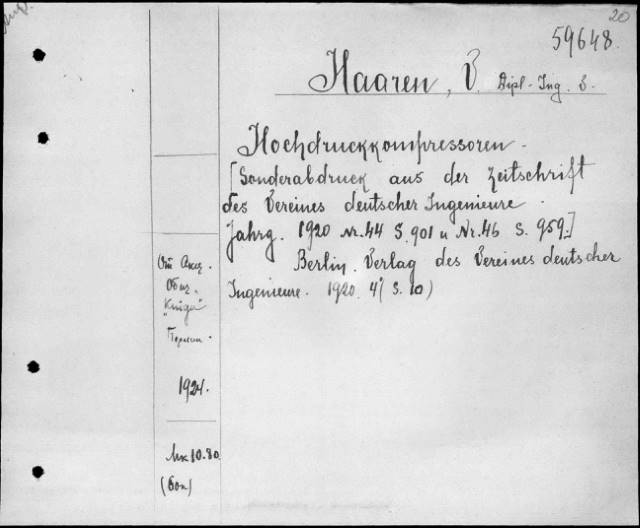 20
59648.
Haaren, V. Dipl-Ing.
Hochdruckkompressoren.
[Sonderabdruck aus der Zeitschrift
des Vereines deutscher Ingenieure.
Jahrg. 1920 Nr. 44 S. 901 u Nr. 46 S. 959.]
Berlin. Verlag des Vereines deutscher
Ingenieure. 1920. 4° (S. 10)
От Акц.
Общ.
"Книга"
Герман.
1924.
Мк 10.80